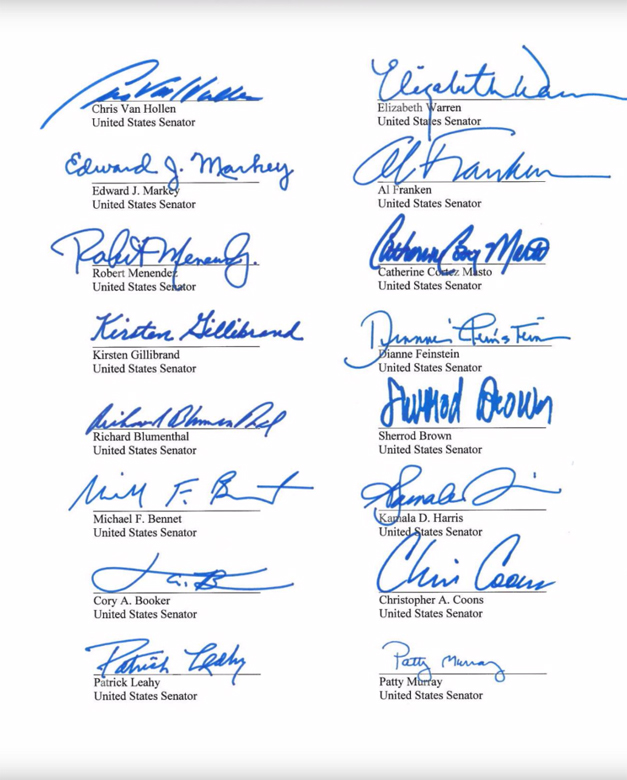 Chris Van Hollen
Chris Van Hollen
United States Senator
Elizabeth Warren
Elizabeth Warren
United States Senator
Edward J. Markey
Edward J. Markey
United States Senator
Al Franken
Al Franken
United States Senator
Robert Menendez
Robert Menendez
United States Senator
Catherine Cortez Masto
Catherine Cortez Masto
United States Senator
Kirsten Gillibrand
Kirsten Gillibrand
United States Senator
Dianne Feinstein
Dianne Feinstein
United States Senator
Richard Blumenthal
Richard Blumenthal
United States Senator
Sherrod Brown
Sherrod Brown
United States Senator
Michael F. Bennet
United States Senator
Kamala D. Harris
United States Senator
Cory A. Booker
United States Senator
Chris Coons
Christopher A. Coons
United States Senator
Patrick Leahy
Patrick Leahy
United States Senator
Patty Murray
Patty Murray
United States Senator